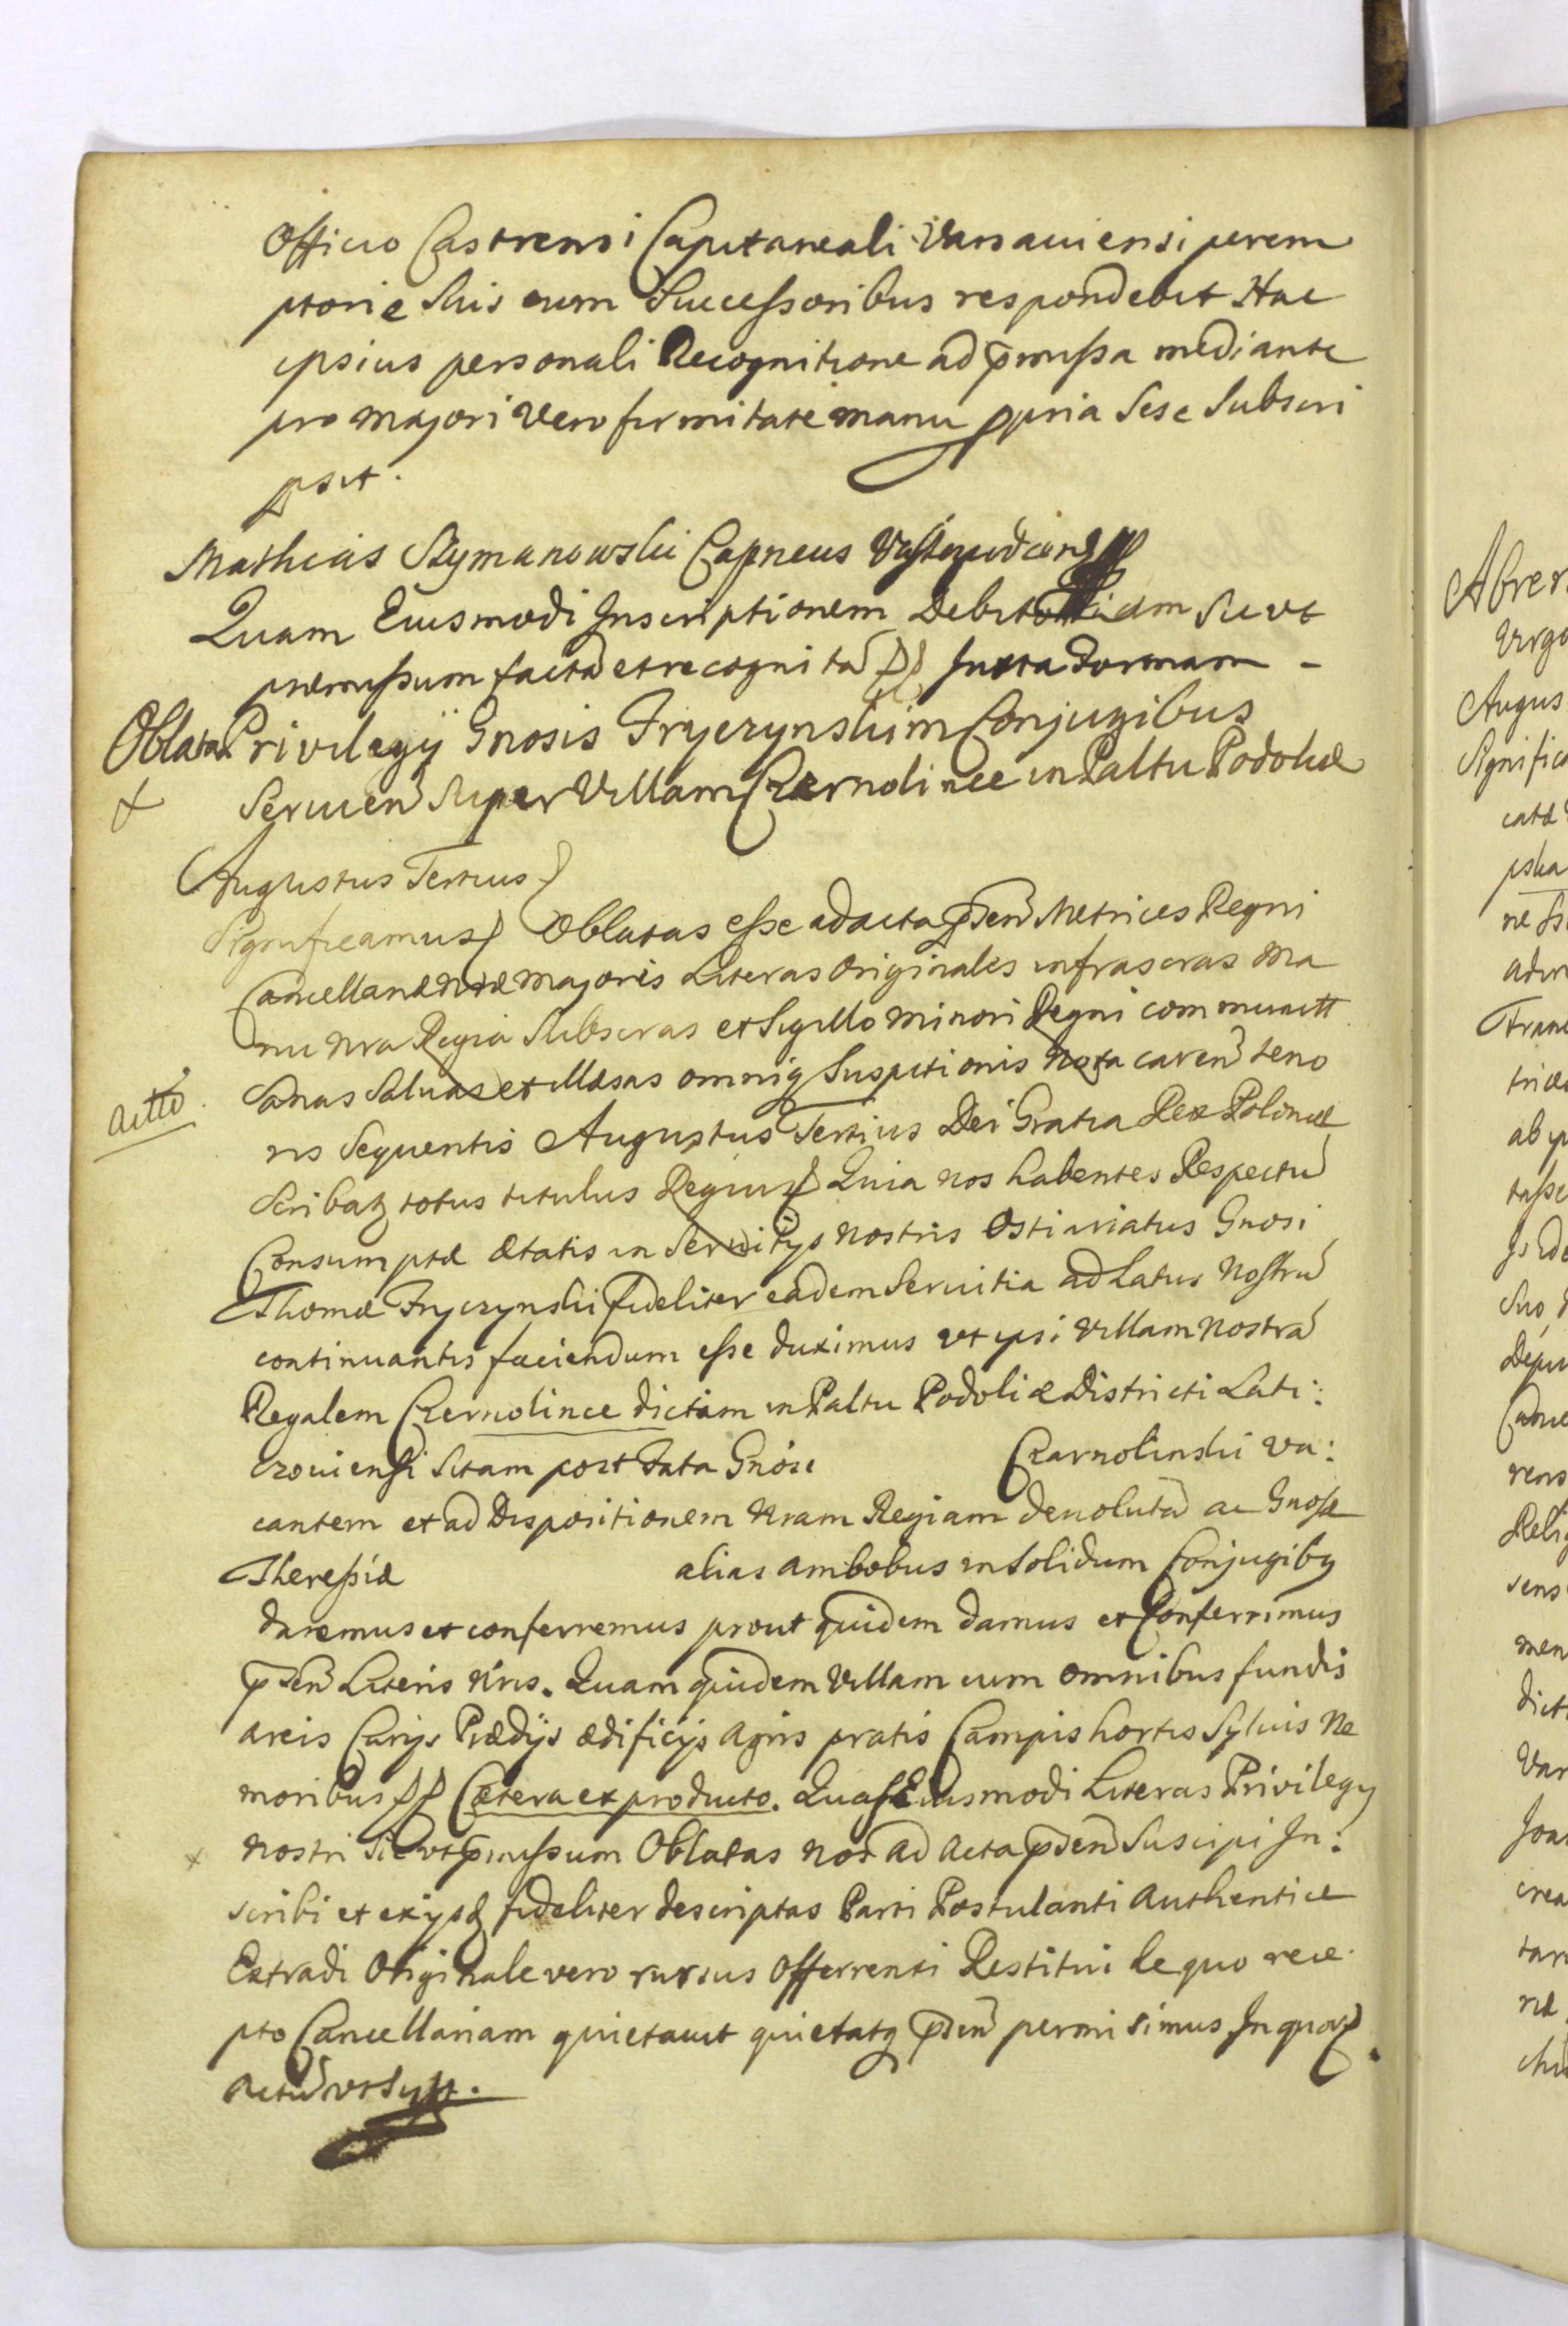 Officio Castrensi Capitaneali Varsaviensi perem
ptorie suis cum Successoribus respondebit Hac
ipsius personali Recognitione ad p̄missa mediante
pro majori vero firmitate manu ppria sese subscri
psit.
Mathias Szymanowski Capneus
Quam Eiusmodi Inscriptionem sic ut
præmissum factā et recognitā Juxta Formam -
Oblata Privilegij Gnosis Fryczynskim Conjugibus
+ Servien̄ super Villam Czernolince in Paltu Podoliæ
Augustus Tertius
Significamus Oblatas esse ad acta p̄sen̄ Metrices Regni
Cancellariæ nræ majoris Literas Originales infrascras Ma
nu nra Regia Subscras et Sigillo minori Regni communitt
Sanas Salvas et illæsas omniq Suspitionis nota caren̄ teno
actū.
ris Sequentis Augustus Tertius Dei Gratia Rex Poloniæ
Scribatz totus titulus Regius Quia nos habentes Respectū
Consumptæ ætatis in Servitijs nostris Ostiariatus Gnosi
Thomæ Fryczynski fideliter eadem Servitia ad Latus Nostrū
continuantis faciendum esse duximus ut ipsi Villam nostrā
Regalem Czernolince dictam in Paltu Podoliæ Districti Lati:
czoviensi sitam post Fata Gnosi Czarnolinski va:
cantem et ad Dispositionem Nram Regiam devolutā ac Gnosæ
Theressiæ alias ambobus in solidum Conjugibq
daremus et conferremus prout quidem damus et Conferrimus
p̄sen̄ Literis nris. Quam quidem Villam cum omnibus fundis
areis Curijs Prædijs ædificijs agris pratis Campis hortis Sylvis Ne
moribus Cætera ex producto. Quas Eiusmodi Literas Privilegij
x Nostri Sic ut p̄missum Oblatas nos ad Acta p̄sen̄ Suscipi In:
scribi et ex ijsq fideliter descriptas Parti Postulanti Authentice
Extradi Originale vero rursus Offerrenti Restitui de quo rece
pto Cancellariam quietavit quietatq p̄sen̄ permisimus In quor
Actū ut supr.